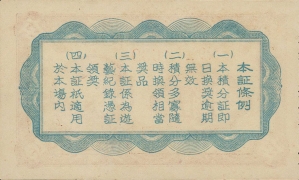 本証条例
(一)本積分証即
日換獎逾期
無效
(二)積分多寡隨
時換領相當
獎品
(三)本証係為遊
藝紀錄憑証
領獎
(四)本証祇適用
於本場內